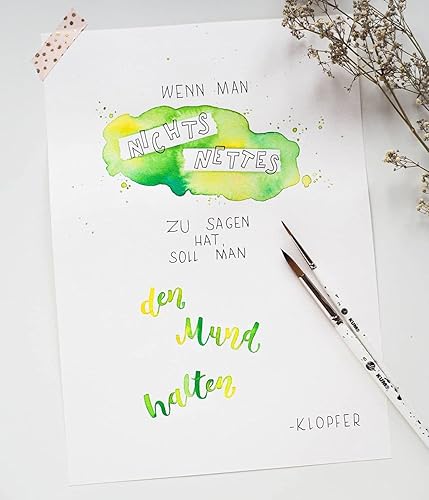 WENN MAN
NICHTS
NETTES
ZU SAGEN
HAT,
SOLL MAN
den
Mund
halten
-KLOPFER